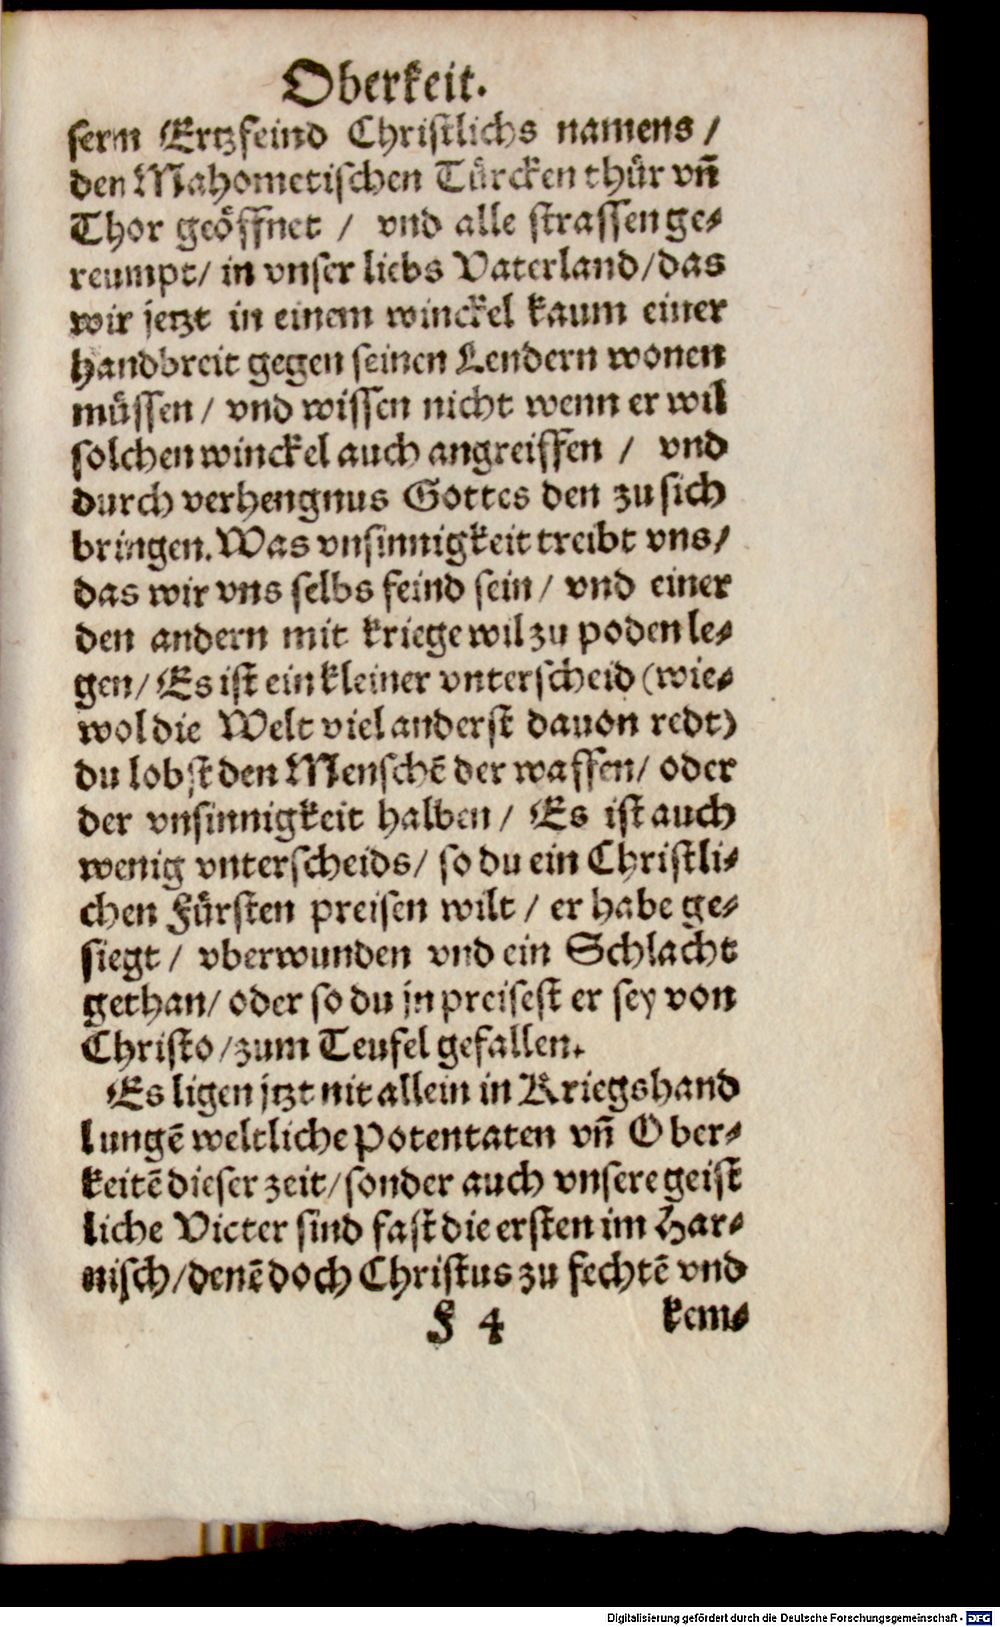 Oberkeit.
serm Ertzfeind Christlichs namens /
den Mahometischen Tuͤrcken thuͤr vn̄
Thor geoͤffnet / vnd alle strassen ge⸗
reumpt/ in vnser liebs Vaterland/das
wir jetzt in einem winckel kaum einer
handbreit gegen seinen Lendern wonen
muͤssen / vnd wissen nicht wenn er wil
solchen winckel auch angreiffen / vnd
durch verhengnus Gottes den zu sich
bringen. Was vnsinnigkeit treibt vns/
das wir vns selbs feind sein/ vnd einer
den andern mit kriege wil zu poden le⸗
gen/ Es ist ein kleiner vnterscheid (wie⸗
wol die Welt viel anderst dauon redt)
du lobst den Menschē der waffen/ oder
der vnsinnigkeit halben/ Es ist auch
wenig vnterscheids/ so du ein Christli⸗
chen Fuͤrsten preisen wilt / er habe ge⸗
siegt / vberwunden vnd ein Schlacht
gethan/ oder so du jn preisest er sey von
Christo/zum Teufel gefallen.
Es ligen jtzt nit allein in Kriegshand
lungē weltliche Potentaten vn̄ Ober⸗
keitē dieser zeit/sonder auch vnsere geist
liche Vieter sind fast die ersten im Har⸗
nisch/denē doch Christus zu fechtē vnd
F 4 kem⸗
Digitalisierung gefördert durch die Deutsche Forschungsgemeinschaft - DFG